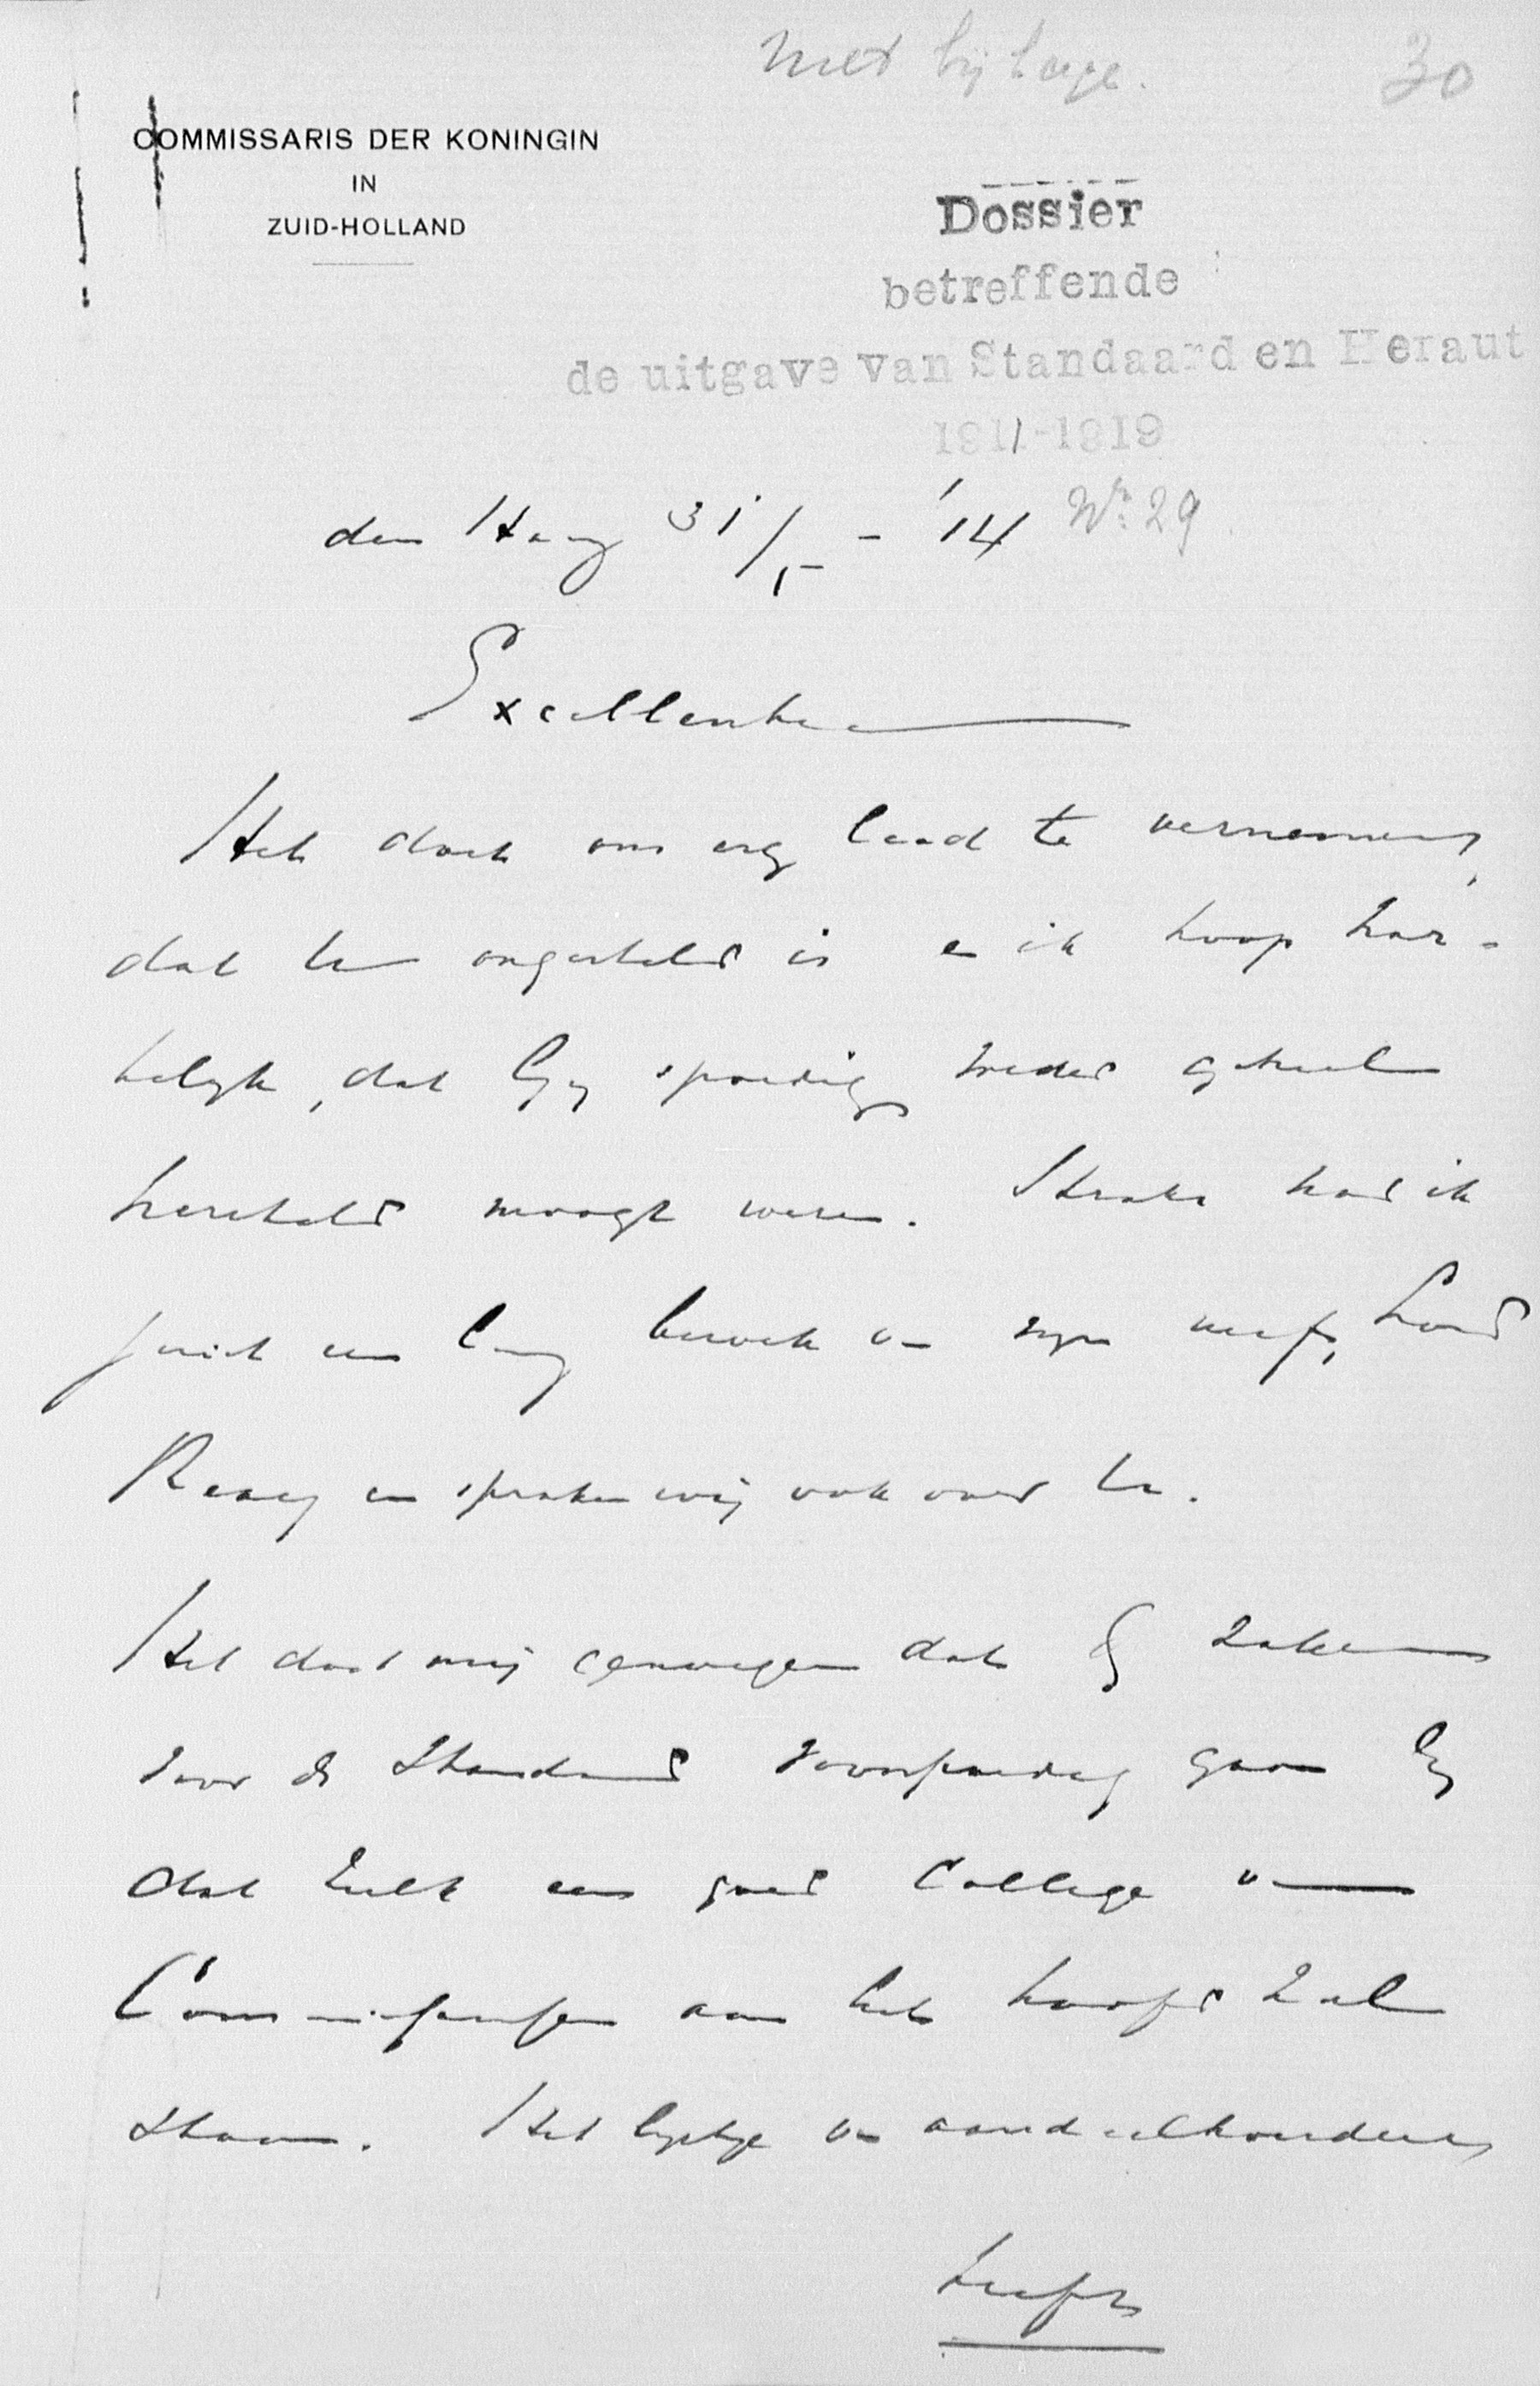 Met bijlage.
30
COMMISSARIS DER KONINGIN
IN
ZUID-HOLLAND
Dossier
betreffende
de uitgave van Standaard en Heraut
1911-1919
den Haag 31/1 - '14 No. 29
Excellentie
Het doet ons erg leed te vernemen,
dat U ongesteld is en ik hoop har-
telijk, dat Gij spoedig weder geheel
hersteld moogt wezen. Straks had ik
juist een lang bezoek van mijn neef, Lord
Reay en spraken wij ook over U.
Het doet mij genoegen dat de zaken
voor de Standaard voorspoedig gaan en
dat zulk een goed College van
Commissarissen aan het hoofd zal
staan. Het lijstje van aandeelhouders
heeft